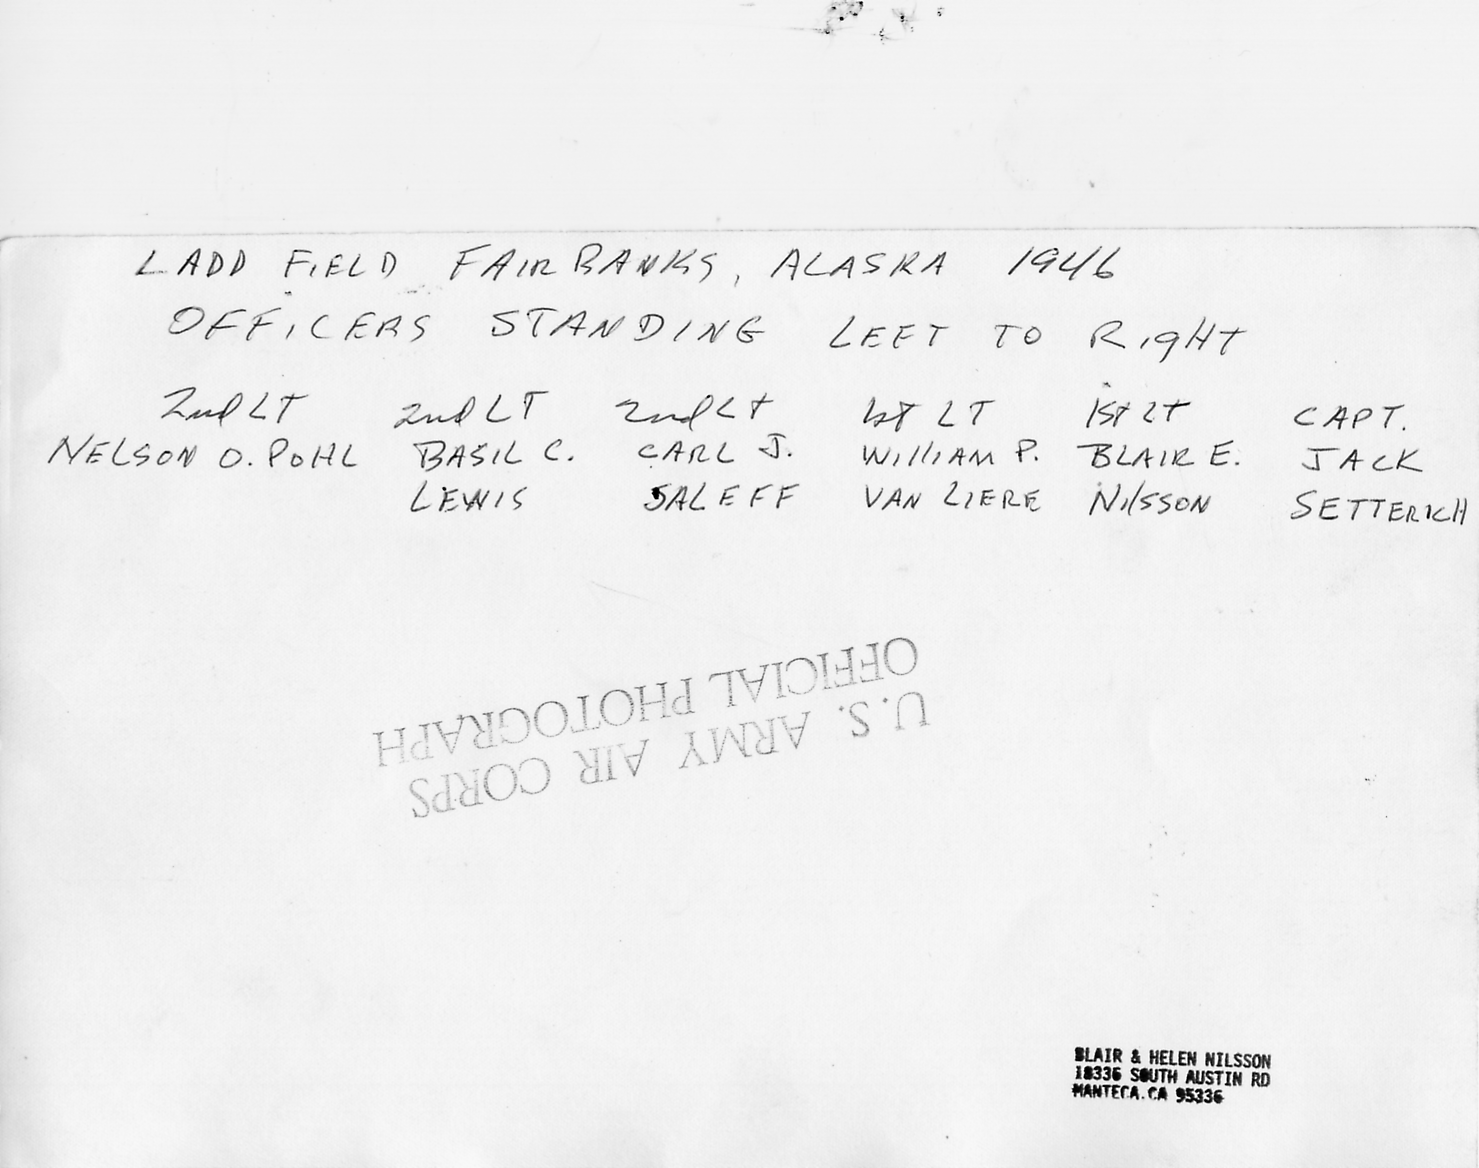 LADD FIELD FAIRBANKS, ALASKA 1946
OFFICERS STANDING LEFT TO RIGHT
2nd LT 2nd LT 2nd Lt 1st LT 1st LT CAPT.
NELSON O. POHL BASIL C. CARL J. WilliAM P. BLAIR E. JACK
LEWIS SALEFF VAN LIERE Nilsson SETTERICH
U.S. ARMY AIR CORPS
OFFICIAL PHOTOGRAPH
BLAIR & HELEN NILSSON
18336 SOUTH AUSTIN RD
MANTECA. CA 95336